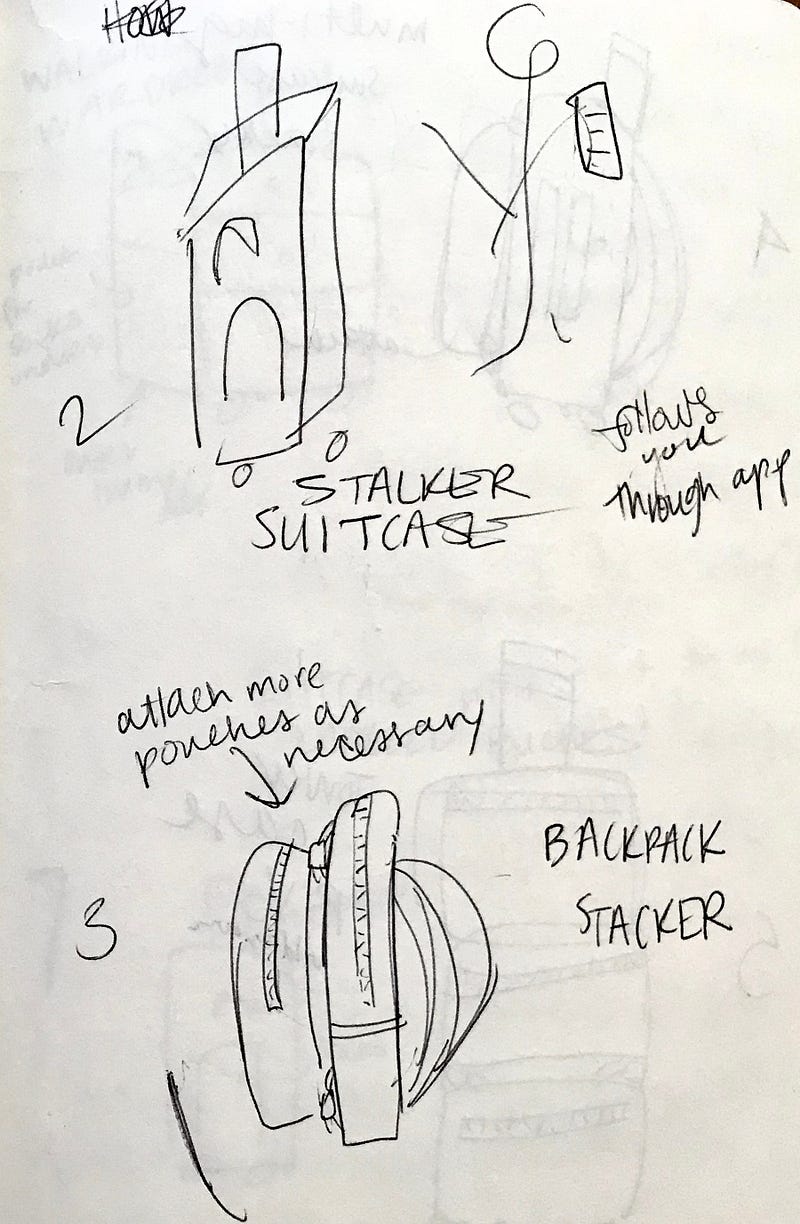 2
STALKER
SUITCASE
follows
you
through app
attach more
pouches as
necessary
3
BACKPACK
STACKER